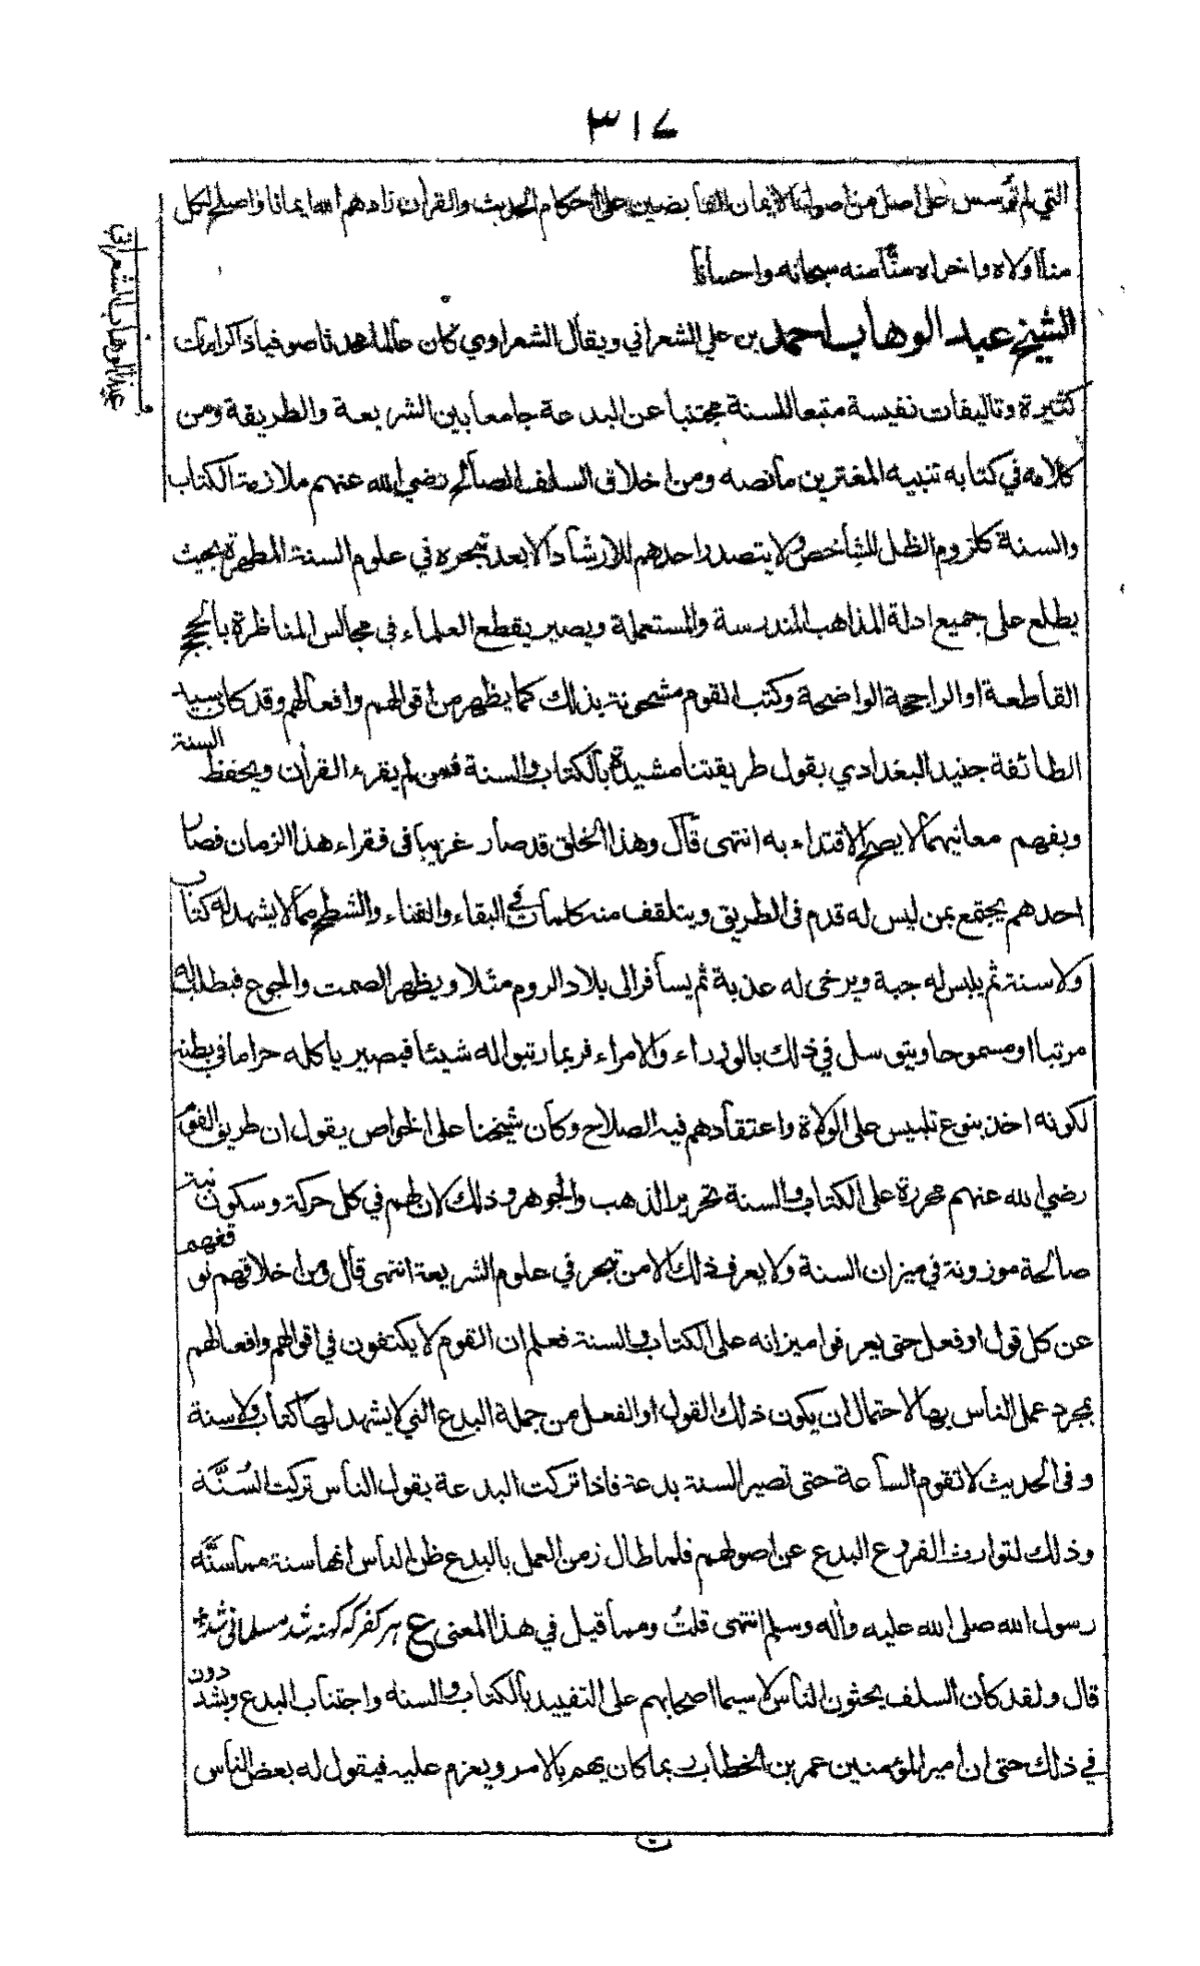 ٣١٧
التي لم تؤسس على اصل من اصول الايمان القابضين على احكام الحديث والقران زادهم الله ايمانا واصلح لكل
منا اولاه واخراه منًّا منه سبحانه واحسانا
عبد الوهاب الشعراني
الشيخ عبد الوهاب احمد بن علي الشعراني ويقال الشعراوي كان عالما محدثا صوفيا ذا كرامات
كثيرة وتاليفات نفيسة متبعا للسنة مجتنبا عن البدعة جامعا بين الشريعة والطريقة ومن
كلامه في كتابه تنبيه المغترين ما نصه ومن اخلاق السلف الصالح رضي الله عنهم ملازمة الكتاب
والسنة كلزوم الظل للشاخص ولا يتصدر احدهم للارشاد الا بعد تبحره في علوم السنة المطهرة بحيث
يطلع على جميع ادلة المذاهب المندرسة والمستعملة ويصير يقطع العلماء في مجالس المناظرة بالحجج
القاطعة او الراجحة الواضحة وكتب القوم مشحونة بذلك كما يظهر من اقوالهم وافعالهم وقد كان سيد
الطائفة جنيد البغدادي يقول طريقتنا مشيدة بالكتاب والسنة فمن لم يقرء القران ويحفظ السنة
ويفهم معانيهما لا يصح الاقتداء به انتهى قال وهذا الخلق قد صار غريبا في فقراء هذا الزمان فصار
احدهم يجتمع بمن ليس له قدم في الطريق ويتلقف منه كلمات في البقاء والفناء والشطح مما لا يشهد له كتاب
ولا سنة ثم يلبس له جبة ويرخى له عذبة ثم يسافر الى بلاد الروم مثلا ويظهر الصمت والجوع فيطلب له
مرتبا او مسموحا ويتوسل في ذلك بالوزراء والامراء فربما رتبوا له شيئا فيصير ياكله حراما في بطنه
لكونه اخذ بنوع تلبيس على الولاة واعتقادهم فيه الصلاح وكان شيخنا على الخواص يقول ان طريق القوم
رضي الله عنهم محررة على الكتاب والسنة تحرير الذهب والجوهر وذلك لان لهم في كل حركة وسكون نية
صالحة موزونة في ميزان السنة ولا يعرف ذلك الا من تبحر في علوم الشريعة انتهى قال ومن اخلاقهم توقفهم
عن كل قول او فعل حتى يعرفوا ميزانه على الكتاب والسنة فعلم ان القوم لا يكتفون في اقوالهم وافعالهم
بمجرد عمل الناس بها لاحتمال ان يكون ذلك القول او الفعل من جملة البدع التي لا يشهد لها كتاب ولا سنة
وفي الحديث لا تقوم الساعة حتى تصير السنة بدعة فاذا تركت البدعة يقول الناس تركت السُنَّة
وذلك لتوارث الفروع البدع عن اصولهم فلما طال زمن العمل بالبدع ظن الناس انها سنة مما سنَّه
رسول الله صلى الله عليه واله وسلم انتهى قلتُ ومما قيل في هذا المعنى ع هر كفر كه كهنه شد مسلماني شد
قال ولقد كان السلف يحثون الناس لا سيما اصحابهم على التقييد بالكتاب والسنة واجتناب البدع ويشددون
في ذلك حتى ان امير المؤمنين عمر بن الخطاب ربما كان يهم بالامر ويعزم عليه فيقول له بعض الناس